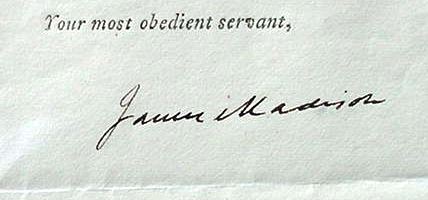 Your most obedient servant,
James Madison